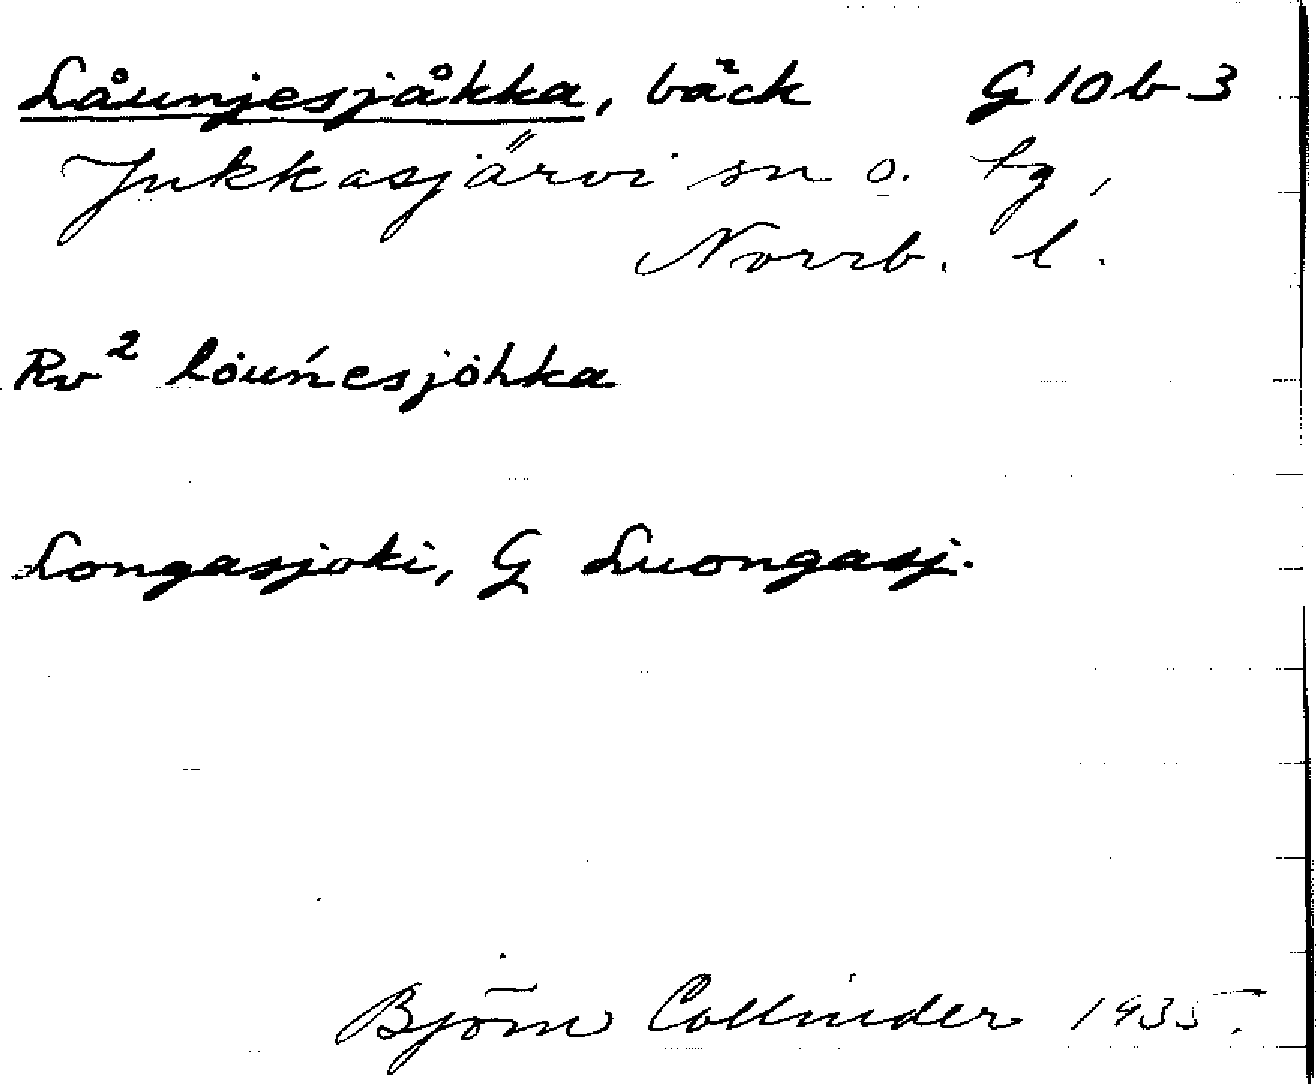 Låunjesjåkka, bäck G 10 b 3
Jukkasjärvi sn o. tg,
Norrb. l.
Rv² lòuńesjòhka
Longasjoki, G Luongasj.
Björn Collinder 1935.